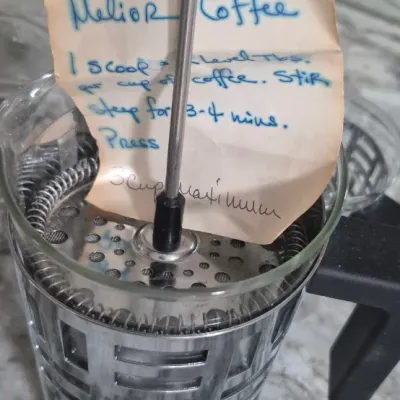 Melior Coffee
1 scoop = level Tbs.
per cup of coffee. Stir
steep for 3-4 mins.
Press
3 cup maximum